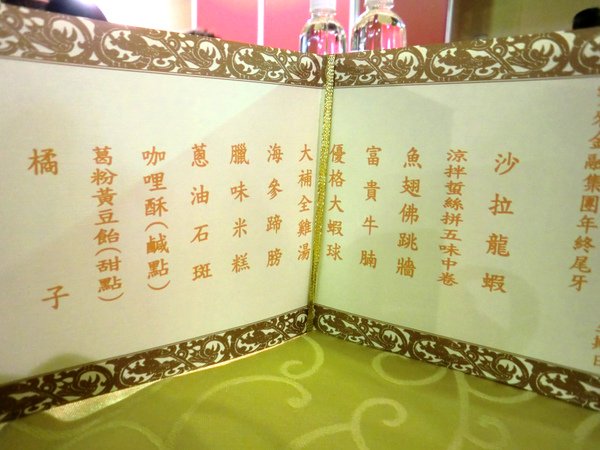 金融集團年終尾牙
沙拉龍蝦
涼拌蜇絲拼五味中卷
魚翅佛跳牆
富貴牛腩
優格大蝦球
大補全雞湯
海參蹄膀
臘味米糕
蔥油石斑
咖哩酥(鹹點)
葛粉黃豆飴(甜點)
橘子